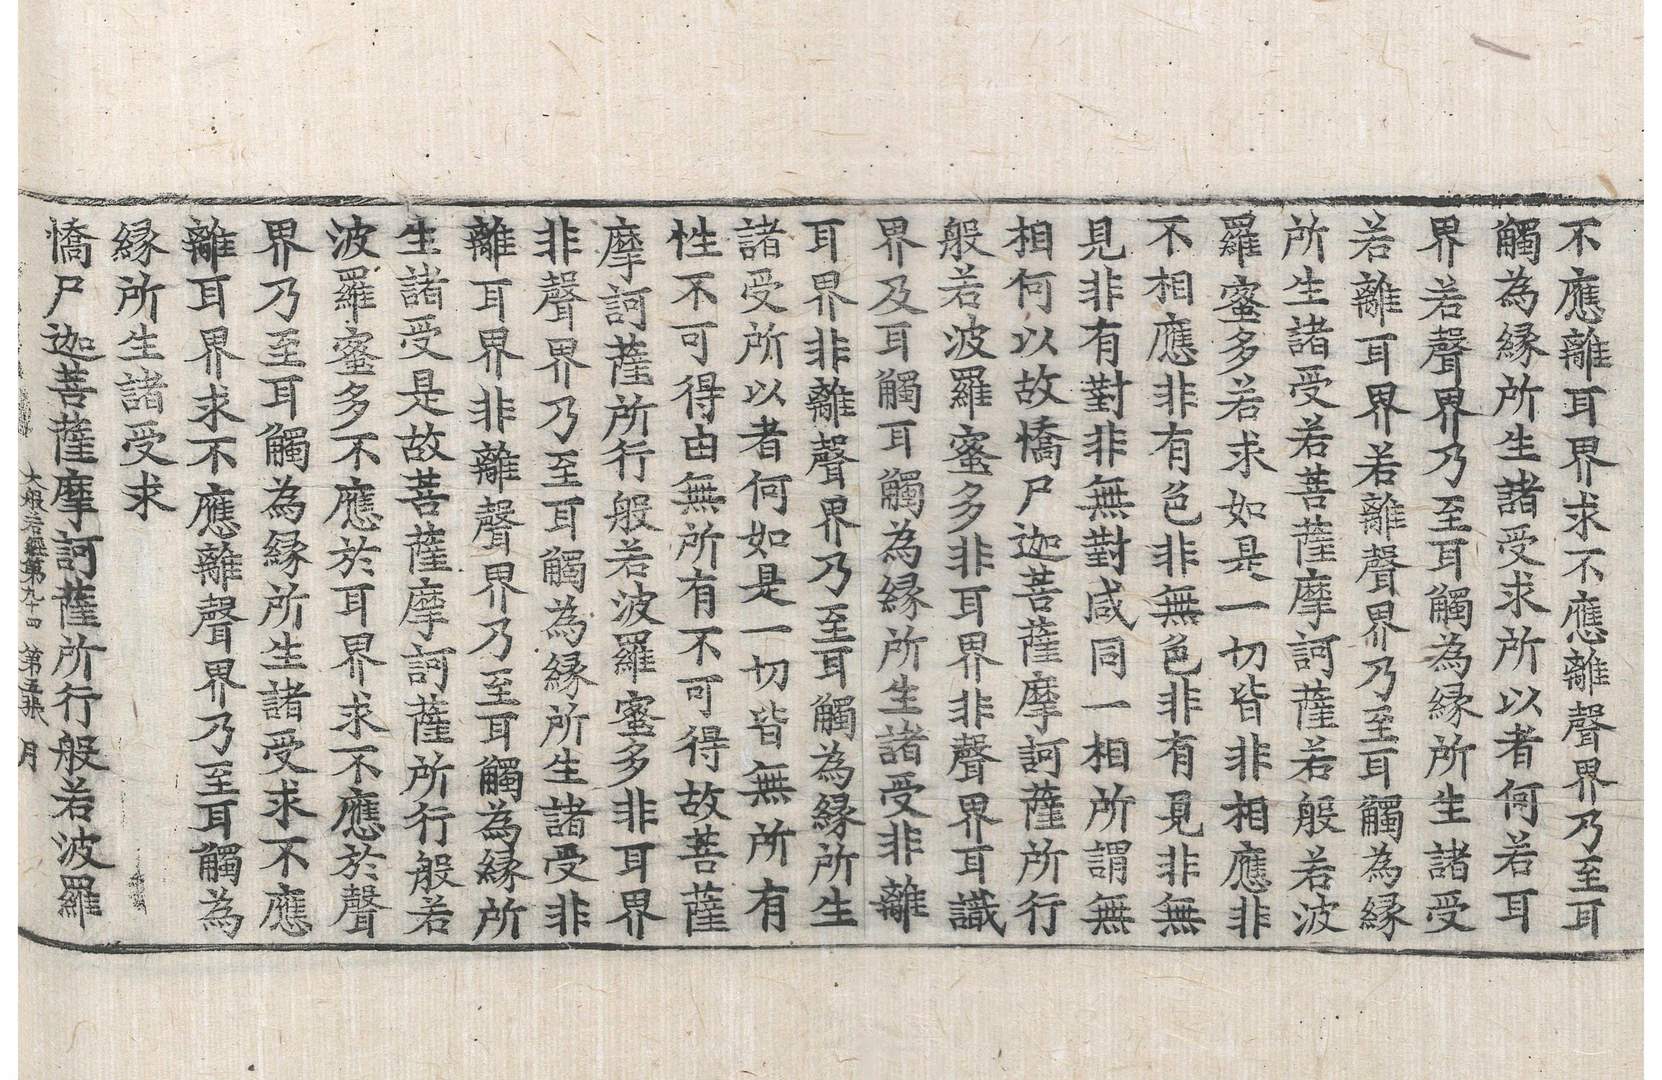 不應離耳界求不應離聲界乃至耳
觸為縁所生諸受求所以者何若耳
界若聲界乃至耳觸為縁所生諸受
若離耳界若離聲界乃至耳觸為縁
所生諸受若菩薩摩訶薩若般若波
羅蜜多若求如是一切皆非相應非
不相應非有色非無色非有見非無
見非有對非無對咸同一相所謂無
相何以故憍尸迦菩薩摩訶薩所行
般若波羅蜜多非耳界非聲界耳識
界及耳觸耳觸為縁所生諸受非離
耳界非離聲界乃至耳觸為縁所生
諸受所以者何如是一切皆無所有
性不可得由無所有不可得故菩薩
摩訶薩所行般若波羅蜜多非耳界
非聲界乃至耳觸為縁所生諸受非
離耳界非離聲界乃至耳觸為縁所
生諸受是故菩薩摩訶薩所行般若
波羅蜜多不應於耳界求不應於聲
界乃至耳觸為縁所生諸受求不應
離耳界求不應離聲界乃至耳觸為
縁所生諸受求
憍尸迦菩薩摩訶薩所行般若波羅
大般若經第九十四 第五張 月